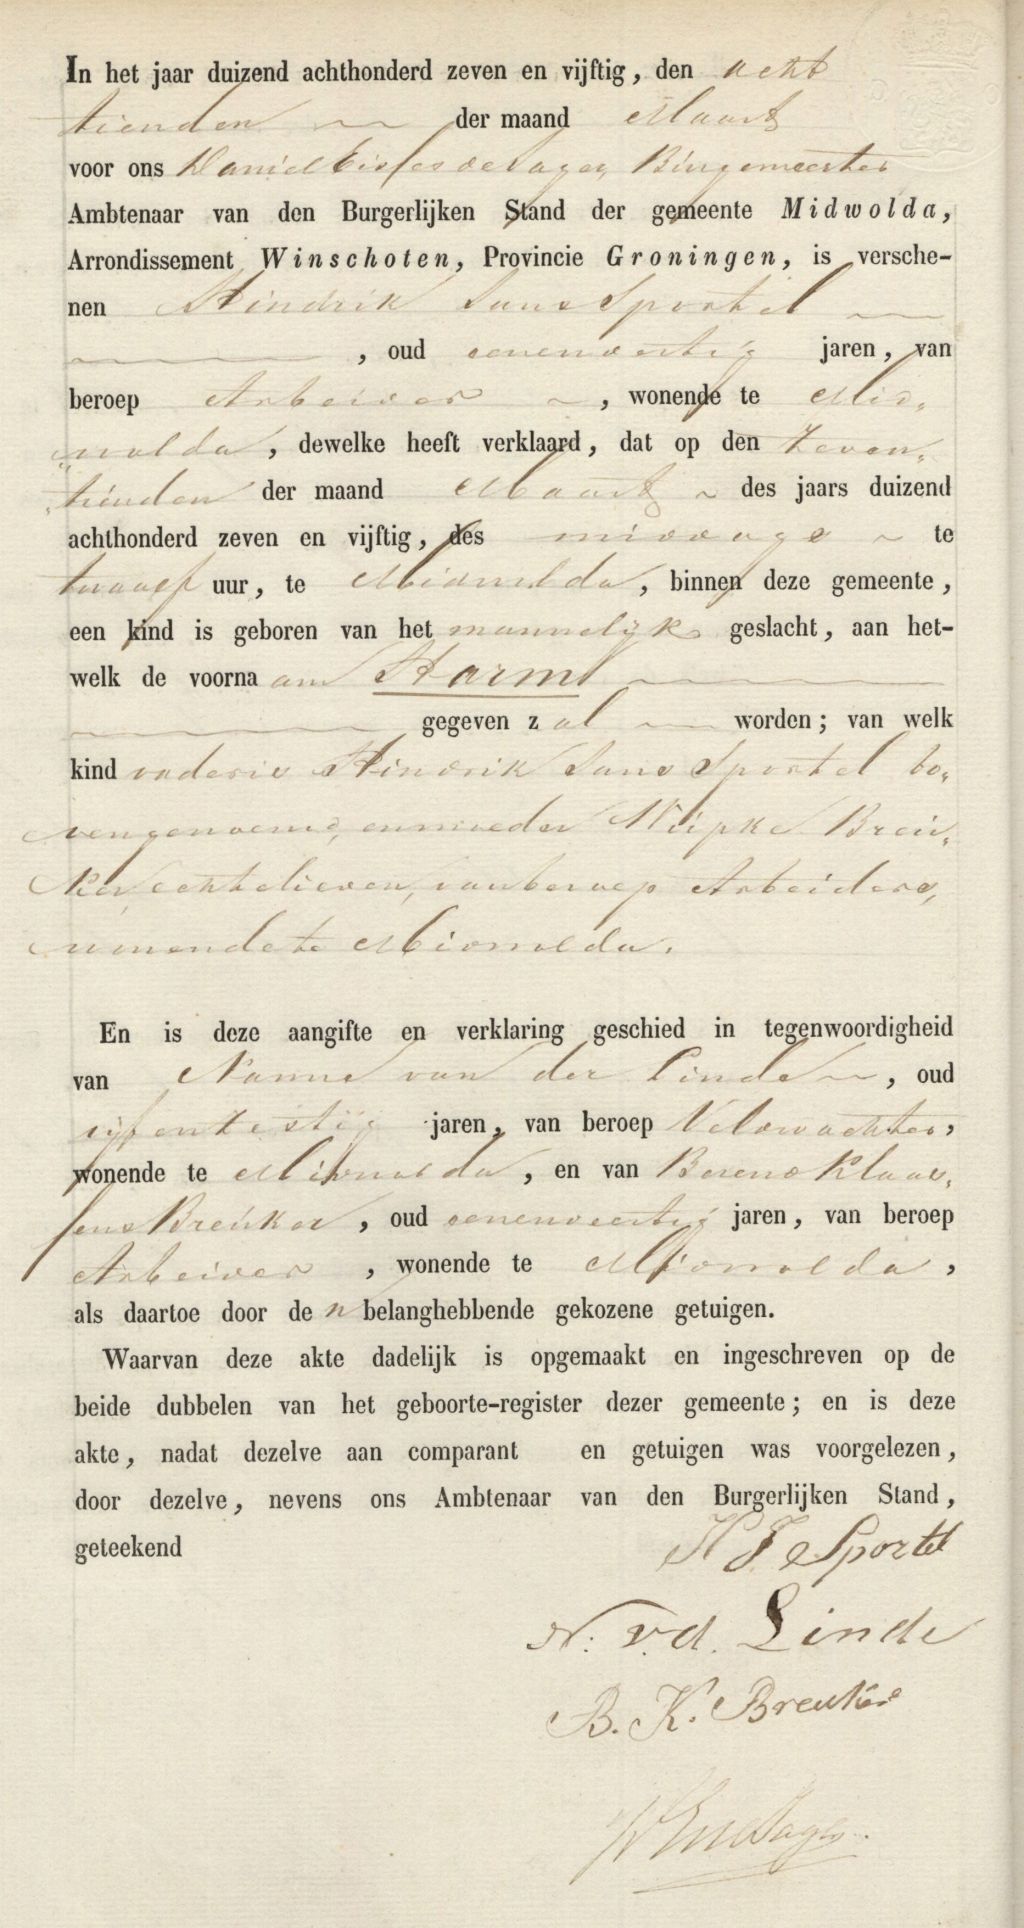 In het jaar duizend achthonderd zeven en vijftig, den acht
tienden der maand Maart
voor ons Daniel de Sager, Burgemeester
Ambtenaar van den Burgerlijken Stand der gemeente Midwolda,
Arrondissement Winschoten, Provincie Groningen, is versche-
nen Hindrik Jans Sportel
, oud eenenveertig jaren, van
beroep Arbeider, wonende te Mid„
„wolda, dewelke heeft verklaard, dat op den Zeven„
„tienden der maand Maart des jaars duizend
achthonderd zeven en vijftig, des middags te
twaalf uur, te Midwolda, binnen deze gemeente,
een kind is geboren van het mannelijk geslacht, aan het-
welk de voornaam Harm
gegeven zal worden; van welk
kind vader is Hindrik Jans Sportel bo„
vengenoemd, en moeder Breu„
ker, echtelieden, van beroep Arbeiders,
wonende te Midwolda.
En is deze aangifte en verklaring geschied in tegenwoordigheid
van Nanne van der Linde, oud
vijfentestig jaren, van beroep Veldwachter,
wonende te Midwolda, en van Berend Klaas„
sens Breuker, oud eenenveertig jaren, van beroep
Arbeider, wonende te Midwolda,
als daartoe door den belanghebbende gekozene getuigen.
Waarvan deze akte dadelijk is opgemaakt en ingeschreven op de
beide dubbelen van het geboorte-register dezer gemeente; en is deze
akte, nadat dezelve aan comparant en getuigen was voorgelezen,
door dezelve, nevens ons Ambtenaar van den Burgerlijken Stand,
geteekend H J Sportel
N. v.d. Linde
B. K. Breuker